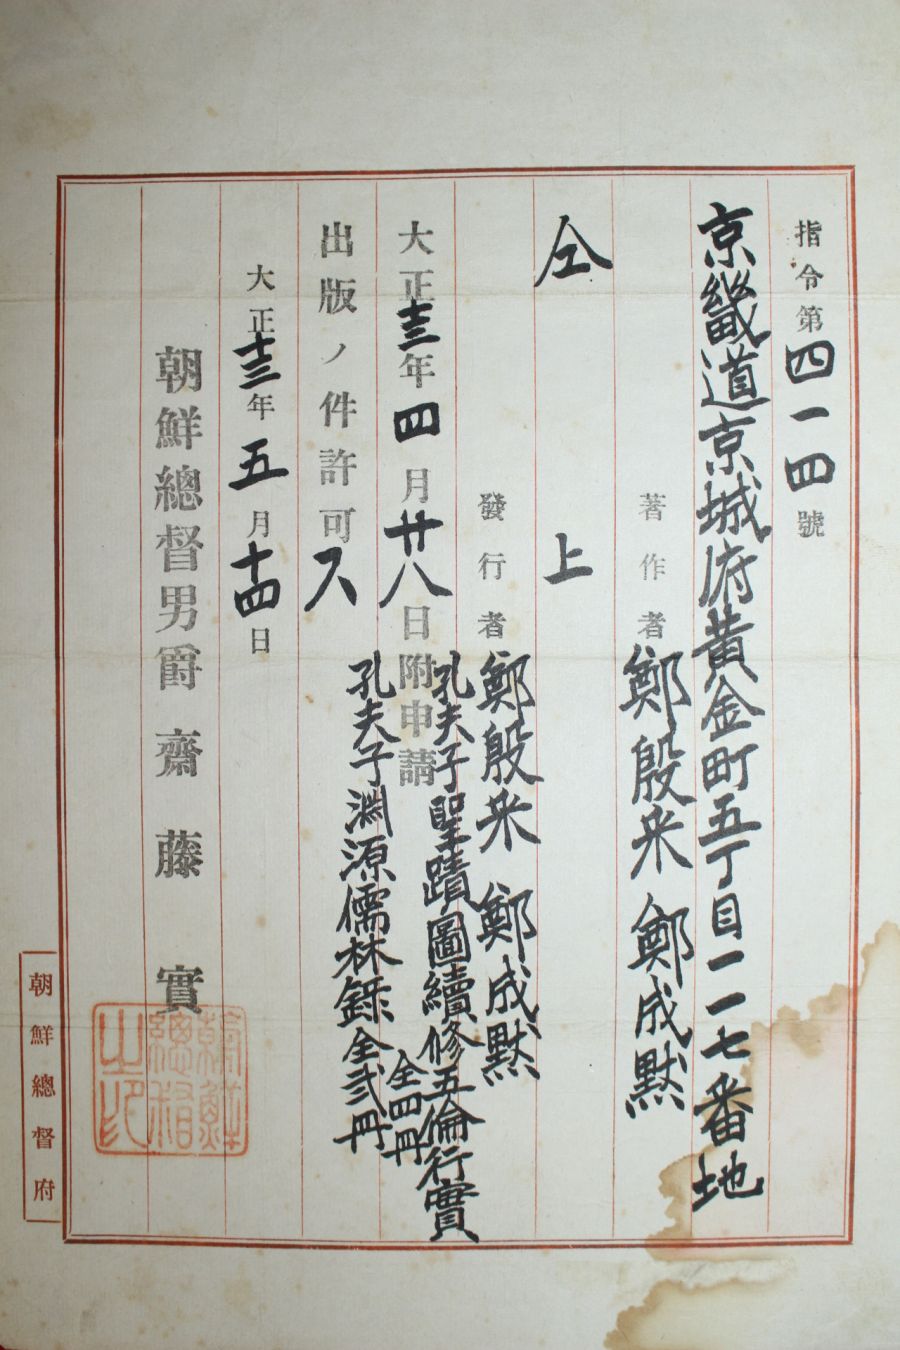 指令第四一四號
京畿道京城府黃金町五丁目一一七番地
著作者 鄭殷采 鄭成默
仝 上
發行者 鄭殷采 鄭成默
大正十三年四月廿八日附申請
孔夫子聖蹟圖續修五倫行實
全四冊
孔夫子淵源儒林錄全弍冊
出版ノ件許可ス
大正十三年五月十四日
朝鮮總督男爵 齋藤 實
朝鮮總督之印
朝鮮總督府